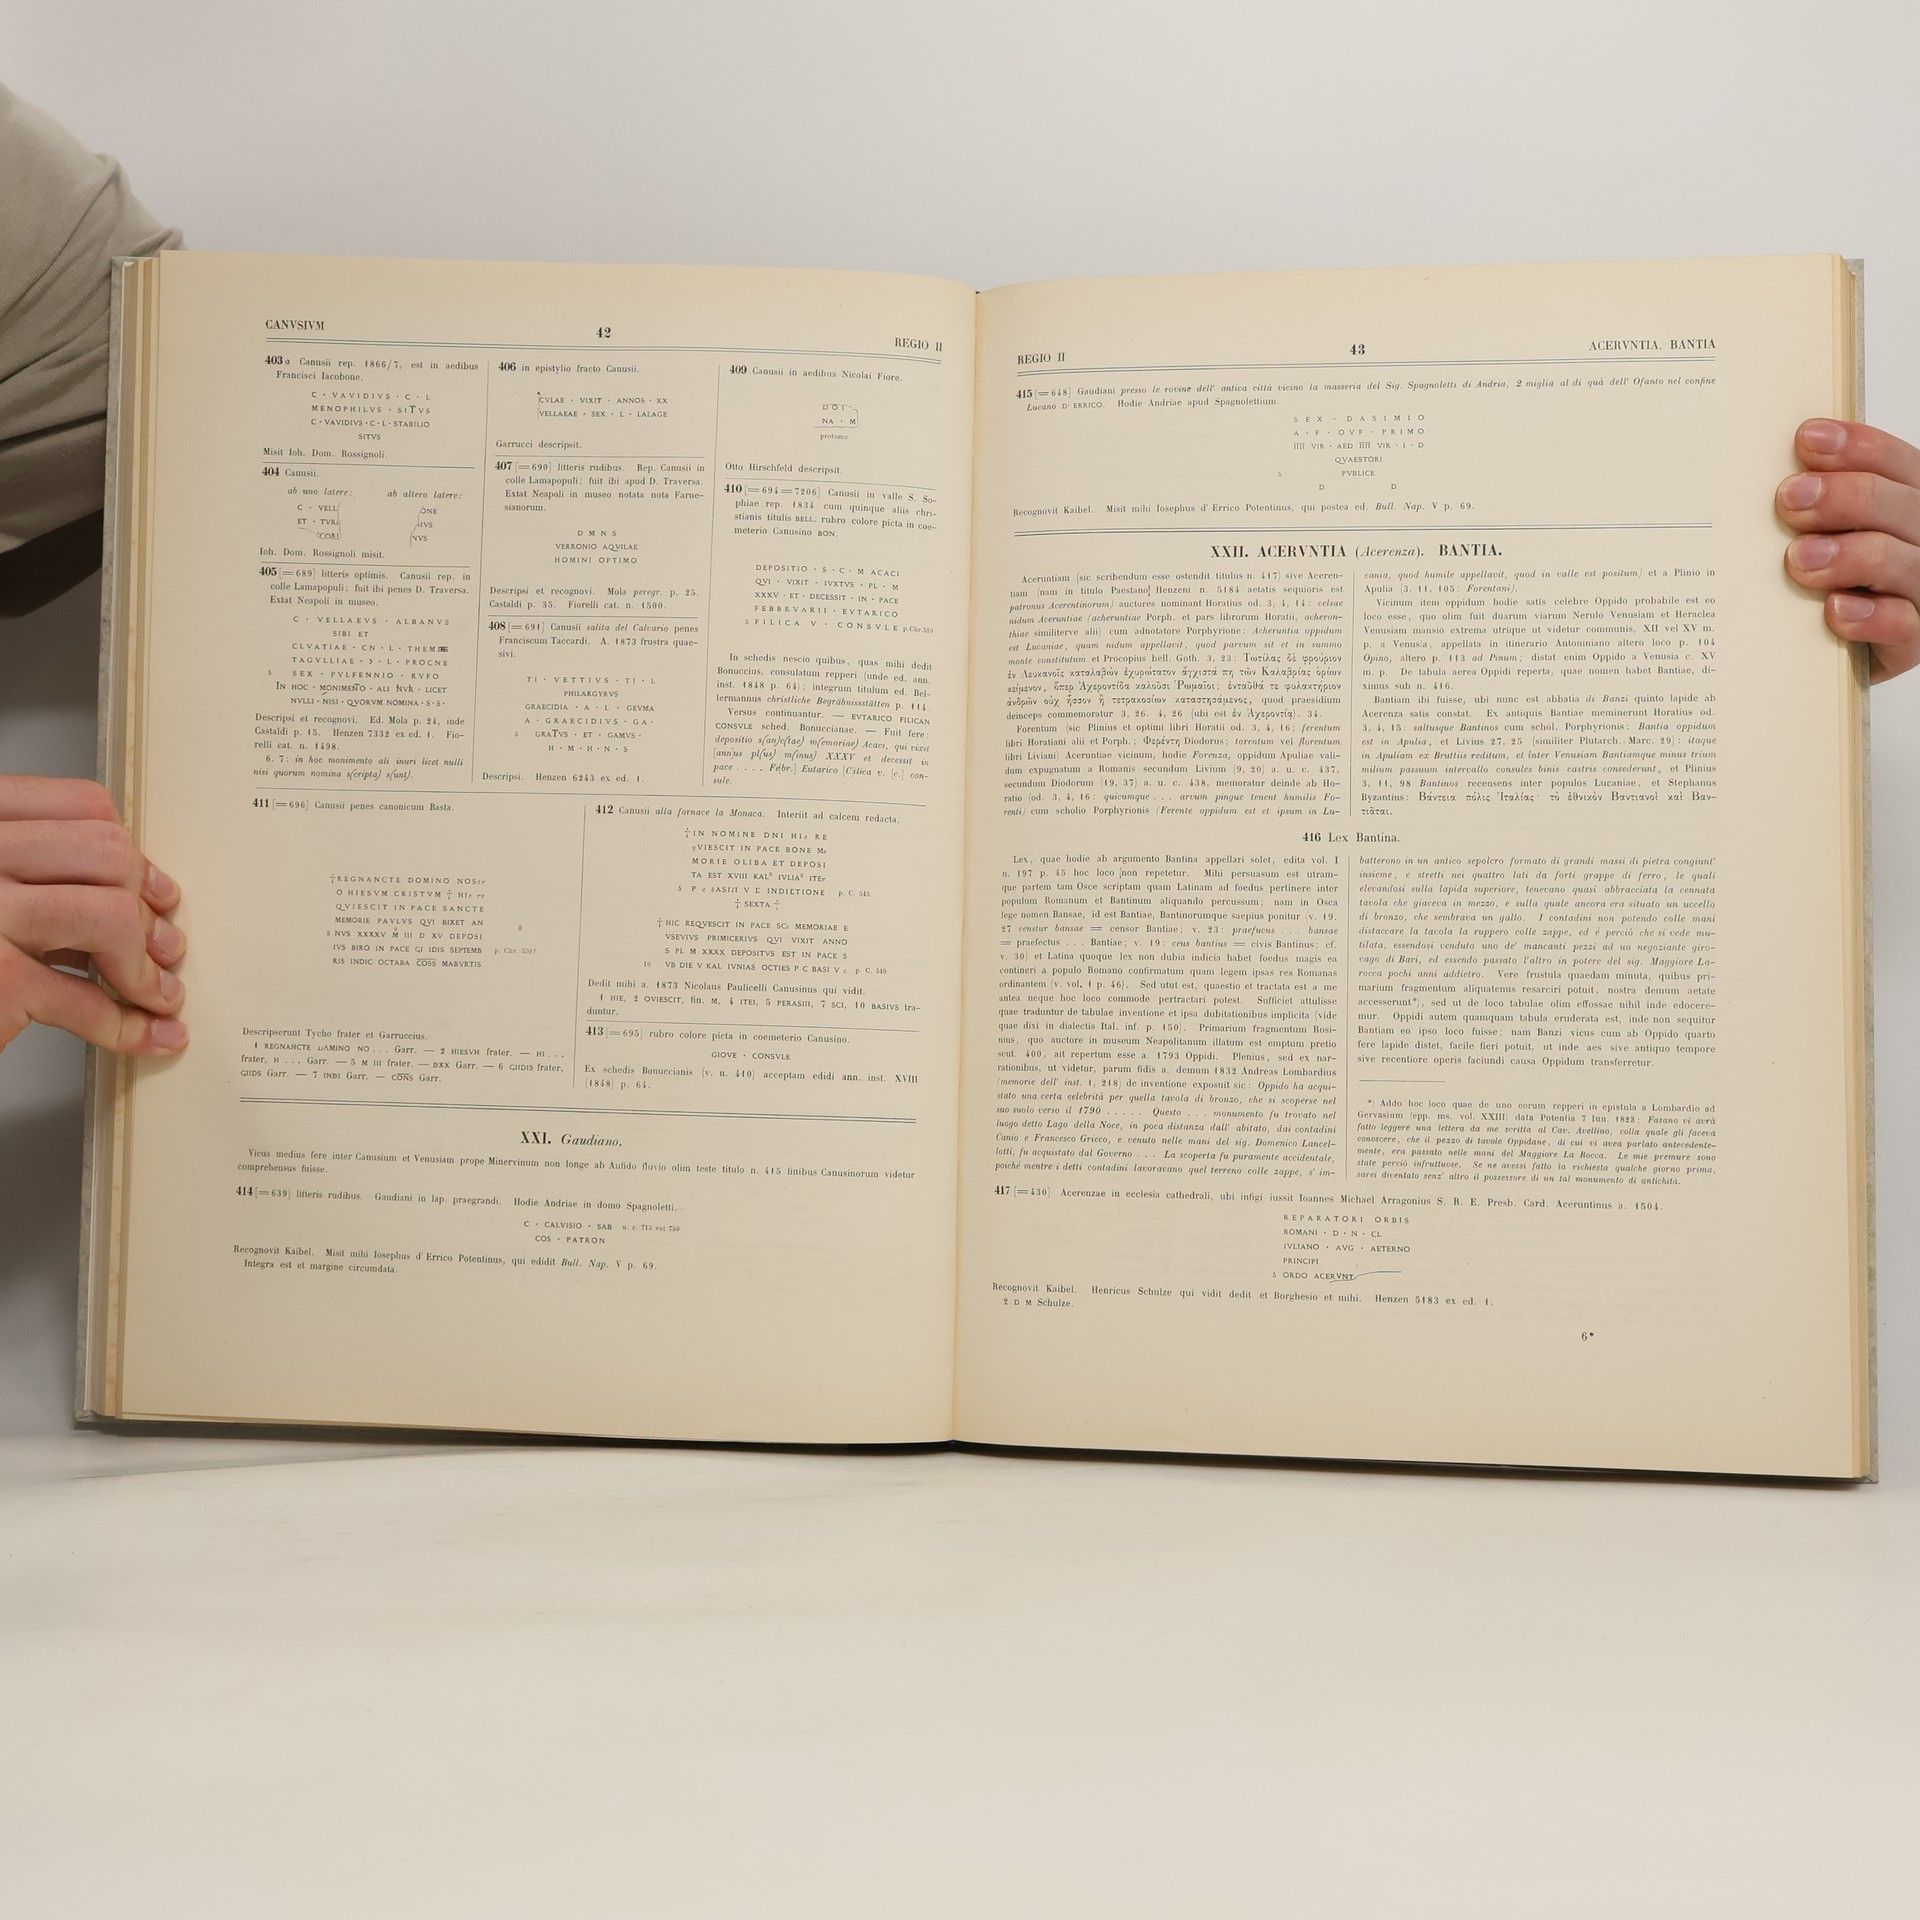 CANVSIVM
42
REGIO II
403a Canusii rep. 1866/7, est in aedibus
Francisci Iacobone.
C · VAVIDIVS · C · L
MENOPHILVS · SITVS
C · VAVIDIVS · C · L · STABILIO
SITVS
Misit Ioh. Dom. Rossignoli.
404 Canusii.
ab uno latere: ab altero latere:
C · VELL ONE
ET · TVR IVS
CORI NVS
Ioh. Dom. Rossignoli misit.
405 [=689] litteris optimis. Canusii rep. in
colle Lamapopuli; fuit ibi penes D. Traversa.
Extat Neapoli in museo.
C · VELLAEVS · ALBANVS
SIBI ET
CLVATIAE · CN · L · THEM
TAGVLLIAE · Ɔ · L · PROCNE
5 SEX · PVLFENNIO · RVFO
IN HOC · MONIMENTO · ALI NVR · LICET
NVLLI · NISI · QVORVM NOMINA · S · S ·
Descripsi et recognovi. Ed. Mola p. 24, inde
Castaldi p. 15. Henzen 7332 ex ed. 1. Fio-
relli cat. n. 1498.
6. 7: in hoc monimento ali inuri licet nulli
nisi quorum nomina s(cripta) s(unt).
406 in epistylio fracto Canusii.
CVLAE · VIXIT · ANNOS · XX
VELLAEAE · SEX · L · LALAGE
Garrucci descripsit.
407 [=690] litteris rudibus. Rep. Canusii in
colle Lamapopuli; fuit ibi apud D. Traversa.
Extat Neapoli in museo notata nota Farne-
sianorum.
D M N S
VERRONIO AQVILAE
HOMINI OPTIMO
Descripsi et recognovi. Mola peregr. p. 25.
Castaldi p. 35. Fiorelli cat. n. 1500.
408 [=691] Canusii salita del Calvario penes
Franciscum Taccardi. A. 1873 frustra quae-
sivi.
TI · VETTIVS · TI · L
PHILARGYRVS
GRAECIDIA · A · L · GEVMA
A · GRAECIDIVS · GA ·
5 GRATVS · ET · GAMVS ·
H · M · H · N · S
Descripsi. Henzen 6243 ex ed. 1.
409 Canusii in aedibus Nicolai Fiore.
DOI
NA · M
protome
Otto Hirschfeld descripsit.
410 [=694=7206] Canusii in valle S. So-
phiae rep. 1834 cum quinque aliis chri-
stianis titulis BELL. rubro colore picta in coe-
meterio Canusino BON.
DEPOSITIO · S · C · M ACACI
QVI · VIXIT · IVXTVS · PL · M
XXXV · ET · DECESSIT · IN · PACE
FEBBRVARII · EVTARICO
5 FILICA V · CONSVLE p.Chr.519
In schedis nescio quibus, quas mihi dedit
Bonuccius, consulatum repperi (unde ed. ann.
inst. 1848 p. 64); integrum titulum ed. Bel-
lermannus christliche Begräbnissstätten p. 114.
Versus continuantur. — EVTARICO FILICAN
CONSVLE sched. Bonuccianae. — Fuit fere:
depositio s(an)c(tae) m(emoriae) Acaci, qui vixit
[ann]us pl(us) m(inus) XXXV et decessit in
pace . . . . Febr.] Eutarico [C]ilica v. [c.] con-
sule.
411 [=696] Canusii penes canonicum Basta.
†REGNANCTE DOMINO NOStr
O HIESVM CRISTVM † HIc re
QVIESCIT IN PACE SANCTE
MEMORIE PAVLVS QVI BIXET AN
5 NVS XXXXV M III D XV DEPOSI
IVS BIRO IN PACE GI IDIS SEPTEMB p. Chr. 530?
RIS INDIC OCTABA COSS MABVRTIS
Descripserunt Tycho frater et Garruccius.
1 REGNAHCTE DAMINO NO . . . Garr. — 2 HIESVH frater. — HI . . .
frater, H . . . Garr. — 5 M III frater. — DXX Garr. — 6 GIIDIS frater,
GIIDS Garr. — 7 INBI Garr. — CONS Garr.
412 Canusii alla fornace la Monaca. Interiit ad calcem redacta.
†IN NOMINE DNI HIc RE
qVIESCIT IN PACE BONE Me
MORIE OLIBA ET DEPOSI
TA EST XVIII KALS IVLIAS ITEr
5 P c BASIII V E INDIETIONE p. C. 543
† SEXTA †
†HIC REQVESCIT IN PACE SCe MEMORIAE E
VSEVIVS PRIMICERIVS QVI VIXIT ANNO
S PL M XXXX DEPOSITVS EST IN PACE S
10 VB DIE V KAL IVNIAS OCTIES P C BASI V c p. C. 549
Dedit mihi a. 1873 Nicolaus Paulicelli Canusinus qui vidit.
1 HIE, 2 OVIESCIT, fin. M, 4 ITEI, 5 PERASIII, 7 SCI, 10 BASIVS tra-
duntur.
413 [=695] rubro colore picta in coemeterio Canusino.
GIOVE · CONSVLE
Ex schedis Bonuccianis (v. n. 410) acceptam edidi ann. inst. XVIII
(1848) p. 64.
XXI. Gaudiano.
Vicus medius fere inter Canusium et Venusiam prope Minervinum non longe ab Aufido fluvio olim teste titulo n. 415 finibus Canusinorum videtur
comprehensus fuisse.
414 [=639] litteris rudibus. Gaudiani in lap. praegrandi. Hodie Andriae in domo Spagnoletti.
C · CALVISIO · SAB u. c. 715 vel 750
COS · PATRON
Recognovit Kaibel. Misit mihi Iosephus d'Errico Potentinus, qui edidit Bull. Nap. V p. 69.
Integra est et margine circumdata.
REGIO II
43
ACERVNTIA. BANTIA
415 [=648] Gaudiani presso le rovine dell' antica città vicino la masseria del Sig. Spagnoletti di Andria, 2 miglia al di quà dell' Ofanto nel confine
Lucano D'ERRICO. Hodie Andriae apud Spagnolettium.
SEX · DASIMIO
A · F · OVF · PRIMO
IIII VIR · AED IIII VIR · I · D
QVAESTORI
5 PVBLICE
D D
Recognovit Kaibel. Misit mihi Iosephus d'Errico Potentinus, qui postea ed. Bull. Nap. V p. 69.
XXII. ACERVNTIA (Acerenza). BANTIA.
Aceruntiam (sic scribendum esse ostendit titulus n. 417) sive Aceren-
tiam (nam in titulo Paestano Henzeni n. 5184 aetatis sequioris est
patronus Acerentinorum) auctores nominant Horatius od. 3, 4, 14: celsae
nidum Aceruntiae (acheruntiae Porph. et pars librorum Horatii, acheron-
thiae similiterve alii) cum adnotatore Porphyrione: Acheruntia oppidum
est Lucaniae, quam nidum appellavit, quod parvum sit et in summo
monte constitutum et Procopius bell. Goth. 3, 23: Τωτίλας δὲ φρούριον
ἐν Λευκανοῖς καταλαβὼν ἐχυρώτατον ἄγχιστά πη τῶν Καλαβρίας ὁρίων
κείμενον, ὅπερ Ἀχεροντίδα καλοῦσι Ῥωμαῖοι; ἐνταῦθά τε φυλακτήριον
ἀνδρῶν οὐχ ἧσσον ἢ τετρακοσίων καταστησάμενος, quod praesidium
deinceps commemoratur 3, 26. 4, 26 (ubi est ἐν Ἀχεροντίᾳ). 34.
Forentum (sic Plinius et optimi libri Horatii od. 3, 4, 16; ferentum
libri Horatiani alii et Porph.; Φερέντη Diodorus; torentum vel florentum
libri Liviani) Aceruntiae vicinum, hodie Forenza, oppidum Apuliae vali-
dum expugnatum a Romanis secundum Livium (9, 20) a. u. c. 437,
secundum Diodorum (19, 37) a. u. c. 438, memoratur deinde ab Ho-
ratio (od. 3, 4, 16: quicumque . . . arvum pingue tenent humilis Fo-
renti) cum scholio Porphyrionis (Ferente oppidum est et ipsum in Lu-
cania, quod humile appellavit, quod in valle est positum) et a Plinio in
Apulia (3, 11, 105: Forentani).
Vicinum item oppidum hodie satis celebre Oppido probabile est eo
loco esse, quo olim fuit duarum viarum Nerulo Venusiam et Heraclea
Venusiam mansio extrema utrique ut videtur communis, XII vel XV m.
p. a Venusia, appellata in itinerario Antoniniano altero loco p. 104
Opino, altero p. 113 ad Pinum; distat enim Oppido a Venusia c. XV
m. p. De tabula aerea Oppidi reperta, quae nomen habet Bantiae, di-
ximus sub n. 416.
Bantiam ibi fuisse, ubi nunc est abbatia di Banzi quinto lapide ab
Acerenza satis constat. Ex antiquis Bantiae meminerunt Horatius od.
3, 4, 15: saltusque Bantinos cum schol. Porphyrionis: Bantia oppidum
est in Apulia, et Livius 27, 25 (similiter Plutarch. Marc. 29): itaque
in Apuliam ex Bruttiis reditum, et inter Venusiam Bantiamque minus trium
milium passuum intervallo consules binis castris consederunt, et Plinius
3, 11, 98 Bantinos recensens inter populos Lucaniae, et Stephanus
Byzantius: Βάντεια πόλις Ἰταλίας· τὸ ἐθνικὸν Βαντιανοὶ καὶ Βαν-
τιᾶται.
416 Lex Bantina.
Lex, quae hodie ab argumento Bantina appellari solet, edita vol. I
n. 197 p. 45 hoc loco non repetetur. Mihi persuasum est utram-
que partem tam Osce scriptam quam Latinam ad foedus pertinere inter
populum Romanum et Bantinum aliquando percussum; nam in Osca
lege nomen Bansae, id est Bantiae, Bantinorumque saepius ponitur (v. 19.
27 censtur bansae = censor Bantiae; v. 23: praefucus . . . bansae
= praefectus . . . Bantiae; v. 19: ceus bantius = civis Bantinus; cf.
v. 30) et Latina quoque lex non dubia indicia habet foedus magis ea
contineri a populo Romano confirmatum quam legem ipsas res Romanas
ordinantem (v. vol. 1 p. 46). Sed utut est, quaestio et tractata est a me
antea neque hoc loco commode pertractari potest. Sufficiet attulisse
quae traduntur de tabulae inventione et ipsa dubitationibus implicita (vide
quae dixi in dialectis Ital. inf. p. 150). Primarium fragmentum Rosi-
nius, quo auctore in museum Neapolitanum illatum est emptum pretio
scut. 400, ait repertum esse a. 1793 Oppidi. Plenius, sed ex nar-
rationibus, ut videtur, parum fidis a. demum 1832 Andreas Lombardius
(memorie dell' inst. 1, 218) de inventione exposuit sic: Oppido ha acqui-
stato una certa celebrità per quella tavola di bronzo, che si scoperse nel
suo suolo verso il 1790 . . . . . Questo . . . monumento fu trovato nel
luogo detto Lago della Noce, in poca distanza dall' abitato, dai contadini
Canio e Francesco Grieco, e venuto nelle mani del sig. Domenico Lancel-
lotti, fu acquistato dal Governo . . . La scoperta fu puramente accidentale,
poichè mentre i detti contadini lavoravano quel terreno colle zappe, s' im-
batterono in un antico sepolcro formato di grandi massi di pietra congiunt'
insieme, e stretti nei quattro lati da forti grappe di ferro, le quali
elevandosi sulla lapida superiore, tenevano quasi abbracciata la cennata
tavola che giaceva in mezzo, e sulla quale ancora era situato un uccello
di bronzo, che sembrava un gallo. I contadini non potendo colle mani
distaccare la tavola la ruppero colle zappe, ed è perciò che si vede mu-
tilata, essendosi venduto uno de' mancanti pezzi ad un negoziante giro-
vago di Bari, ed essendo passato l'altro in potere del sig. Maggiore La-
rocca pochi anni addietro. Vere frustula quaedam minuta, quibus pri-
marium fragmentum aliquatenus resarciri potuit, nostra demum aetate
accesserunt*), sed ut de loco tabulae olim effossae nihil inde edocere-
mur. Oppidi autem quamquam tabula eruderata est, inde non sequitur
Bantiam eo ipso loco fuisse; nam Banzi vicus cum ab Oppido quarto
fere lapide distet, facile fieri potuit, ut inde aes sive antiquo tempore
sive recentiore operis faciundi causa Oppidum transferretur.
*) Addo hoc loco quae de uno eorum repperi in epistula a Lombardio ad
Gervasium (epp. ms. vol. XXIII) data Potentia 7 Iun. 1823: Fasano vi avrà
fatto leggere una lettera da me scritta al Cav. Avellino, colla quale gli faceva
conoscere, che il pezzo di tavole Oppidane, di cui vi avea parlato antecedente-
mente, era passato nelle mani del Maggiore La Rocca. Le mie premure sono
state perciò infruttuose. Se ne avessi fatto la richiesta qualche giorno prima,
sarei diventato senz' altro il possessore di un tal monumento di antichità.
417 [=430] Acerenzae in ecclesia cathedrali, ubi infigi iussit Ioannes Michael Arragonius S. R. E. Presb. Card. Aceruntinus a. 1504.
REPARATORI ORBIS
ROMANI · D · N · CL
IVLIANO · AVG · AETERNO
PRINCIPI
5 ORDO ACERVNT
Recognovit Kaibel. Henricus Schulze qui vidit dedit et Borghesio et mihi. Henzen 5183 ex ed. 1.
2 D M Schulze.
6*